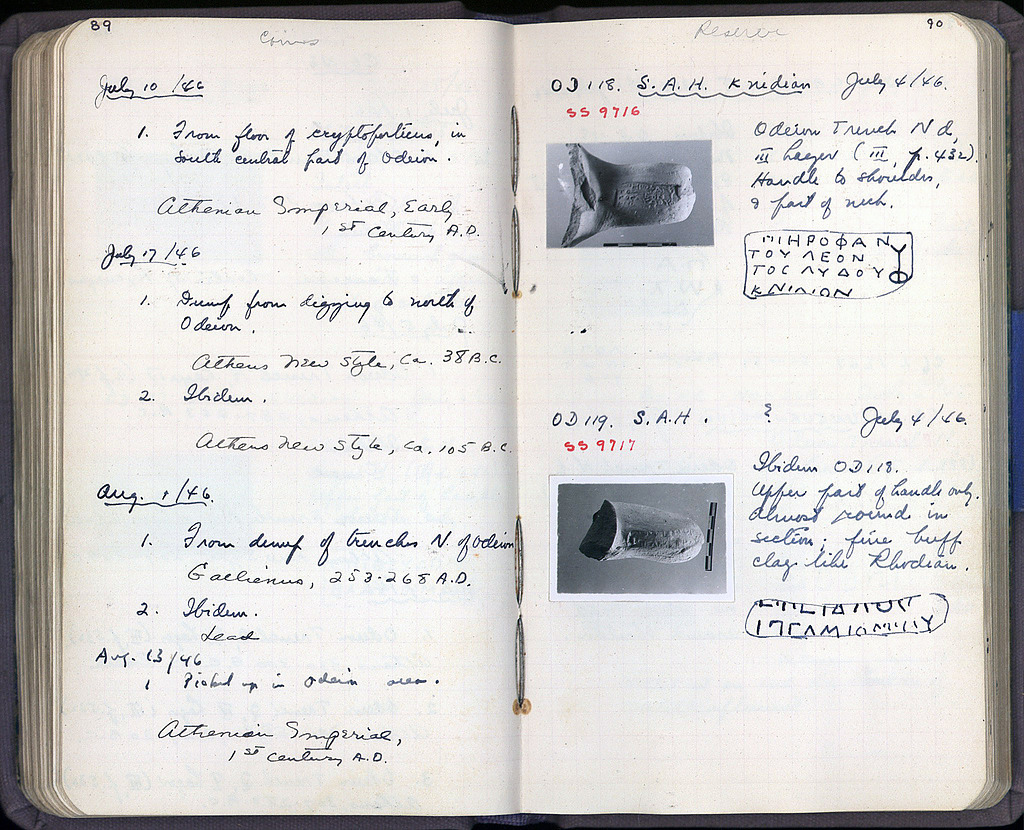 89
Coins
July 10 /46
1. From floor of cryptoporticus, in
south central part of Odeion.
Athenian Imperial, Early
1st Century A.D.
July 17 /46
1. Dump from digging to north of
Odeion.
Athens New Style, Ca. 38 B.C.
2. Ibidem.
Athens New Style, Ca. 105 B.C.
Aug. /46.
1. From dump of trenches N. of Odeion
Gallienus, 253-268 A.D.
2. Ibidem.
Lead
Aug. 13/46
1 Picked up in Odeion area.
Athenian Imperial,
1st Century A.D.
90
Reserve
OD 118. S.A.H. Knidian July 4/46.
SS 9716
Odeion Trench N d,
III Layer (III, p. 432).
Handle to shoulder,
& part of neck.
ΠΙΗΡΟΦΑΝ
ΤΟΥ ΛΕΟΝ
ΤΟϹ ΛΥΔΟΥ
ΚΝΙΔΙΟΝ
OD 119. S.A.H. ? July 4/46.
SS 9717
Ibidem OD 118.
Upper part of handle only.
Almost round in
section; fine buff
clay like Rhodian.